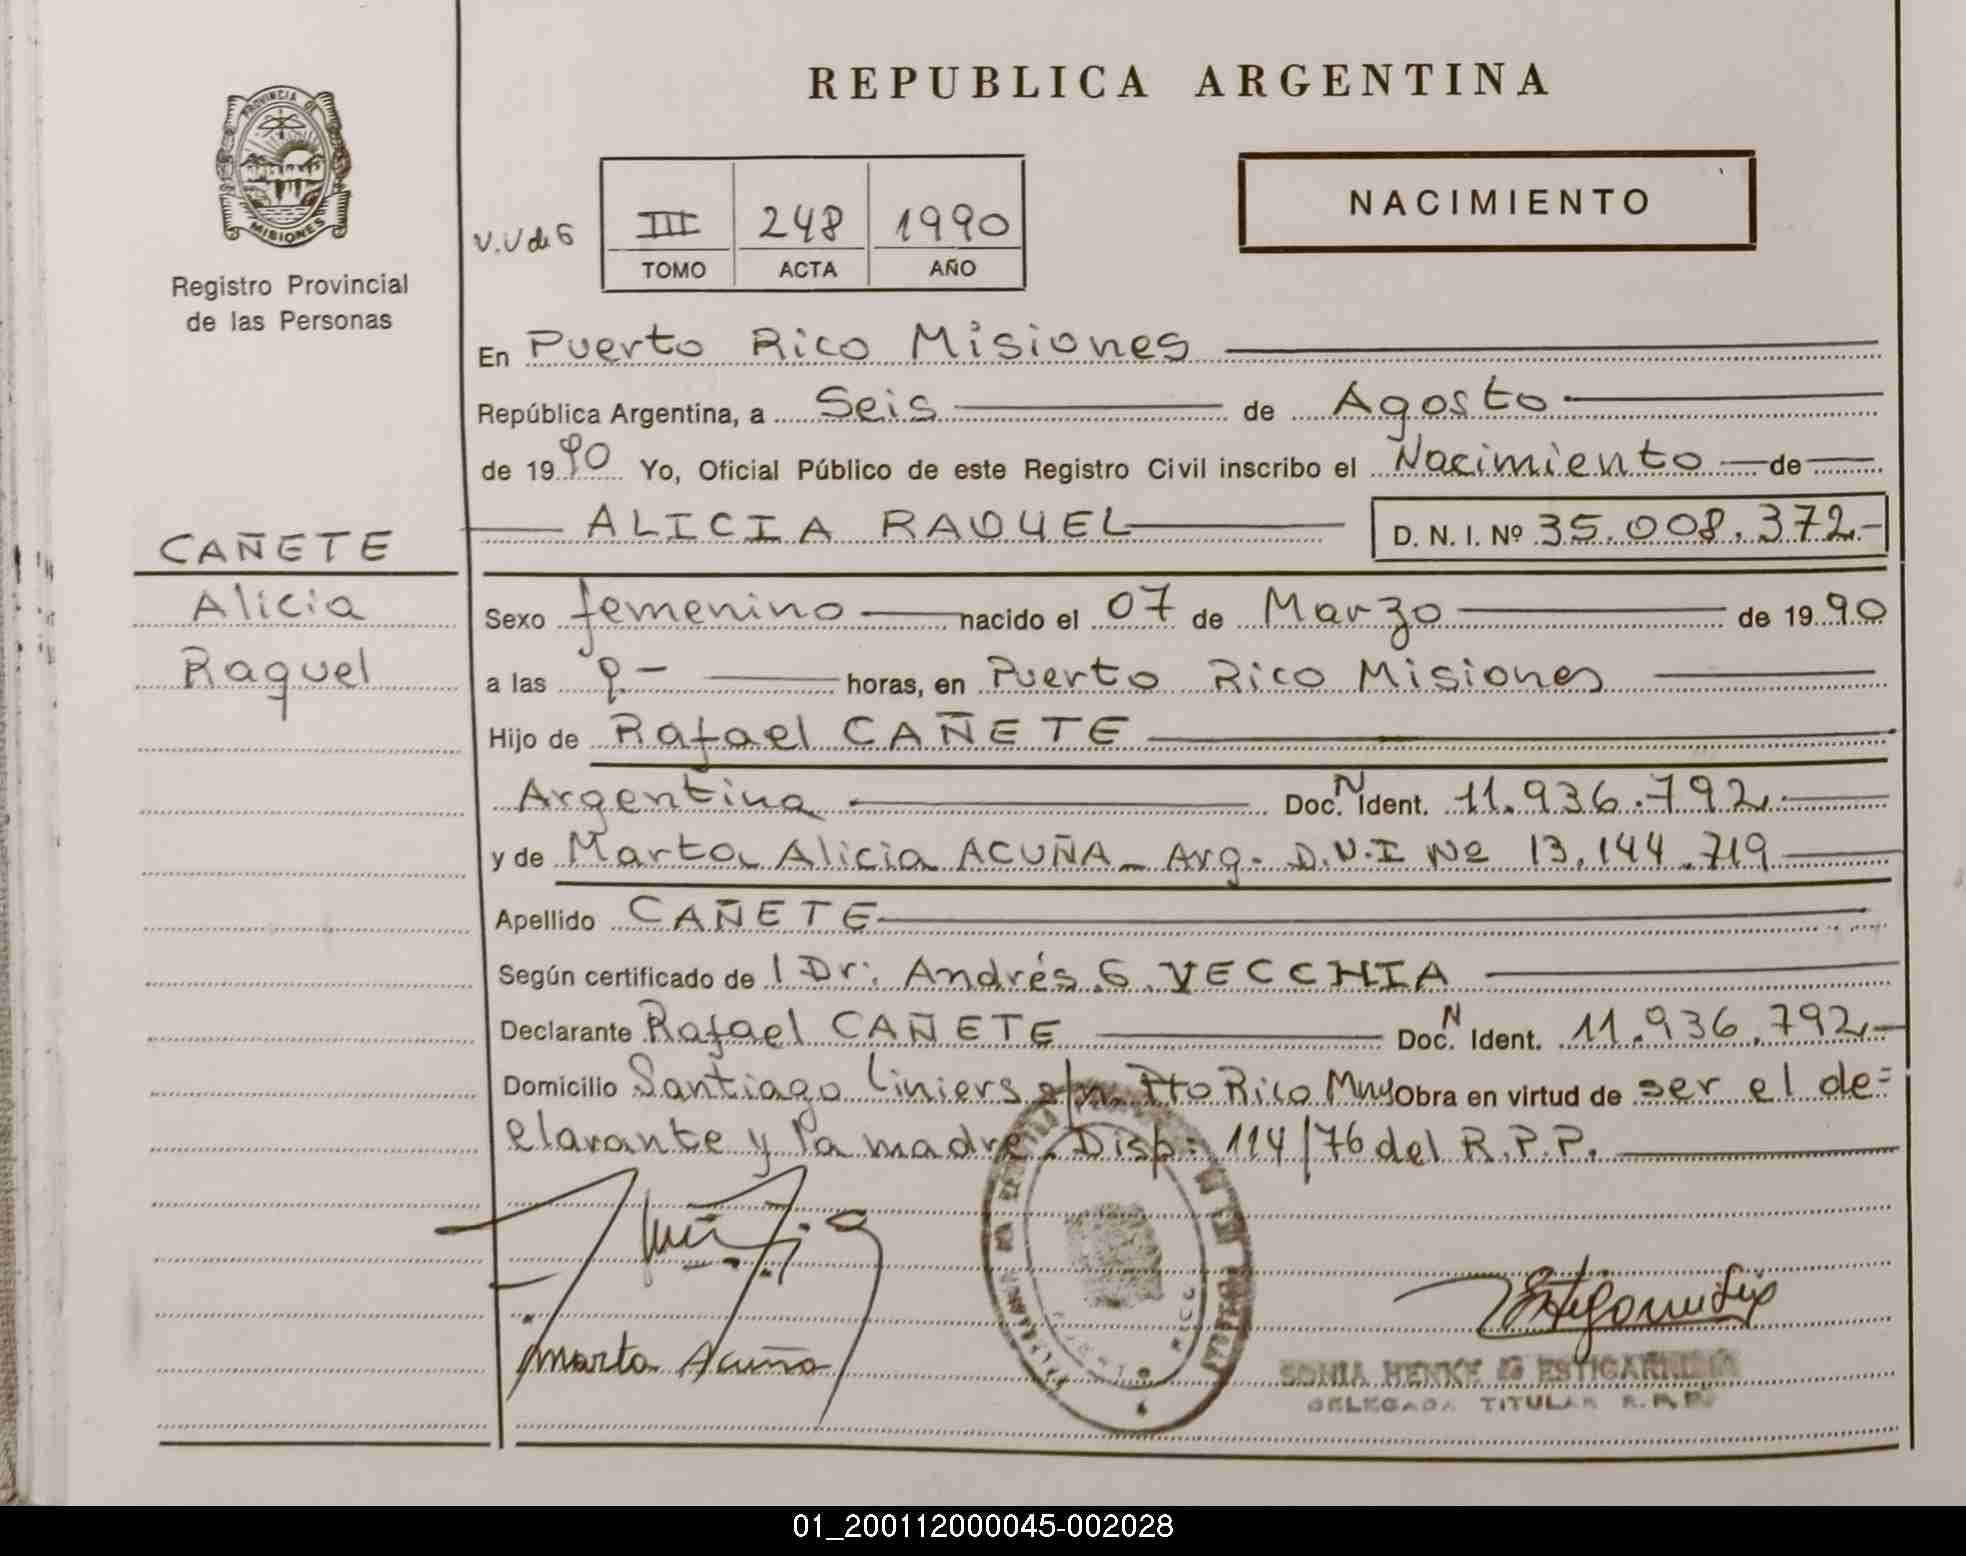 REPUBLICA ARGENTINA
PROVINCIA DE
MISIONES
Registro Provincial
de las Personas
NACIMIENTO
III 248 1990
TOMO ACTA AÑO
En Puerto Rico Misiones
República Argentina, a Seis de Agosto
de 1990 Yo, Oficial Público de este Registro Civil inscribo el Nacimiento de
ALICIA RAQUEL D. N. I. Nº 35.008.372-
CAÑETE
Alicia
Raquel
Sexo femenino nacido el 07 de Marzo de 1990
a las horas, en Puerto Rico Misiones
Hijo de Rafael CAÑETE
Argentina Doc. N Ident. 11.936.792
y de Marta Alicia ACUÑA - Arg. D.N.I Nº 13.144.719
Apellido CAÑETE
Según certificado de l Dr: Andrés G. VECCHIA
Declarante Rafael CAÑETE Doc. N Ident. 11.936.792.-
Domicilio Santiago Liniers s/n. Pto Rico Mnes Obra en virtud de ser el de=
clarante y la madre. Disp: 114/76 del R.P.P.
Marta Acuña
SONIA HENKE
DELEGADA TITULAR R.P.P.
01_200112000045-002028